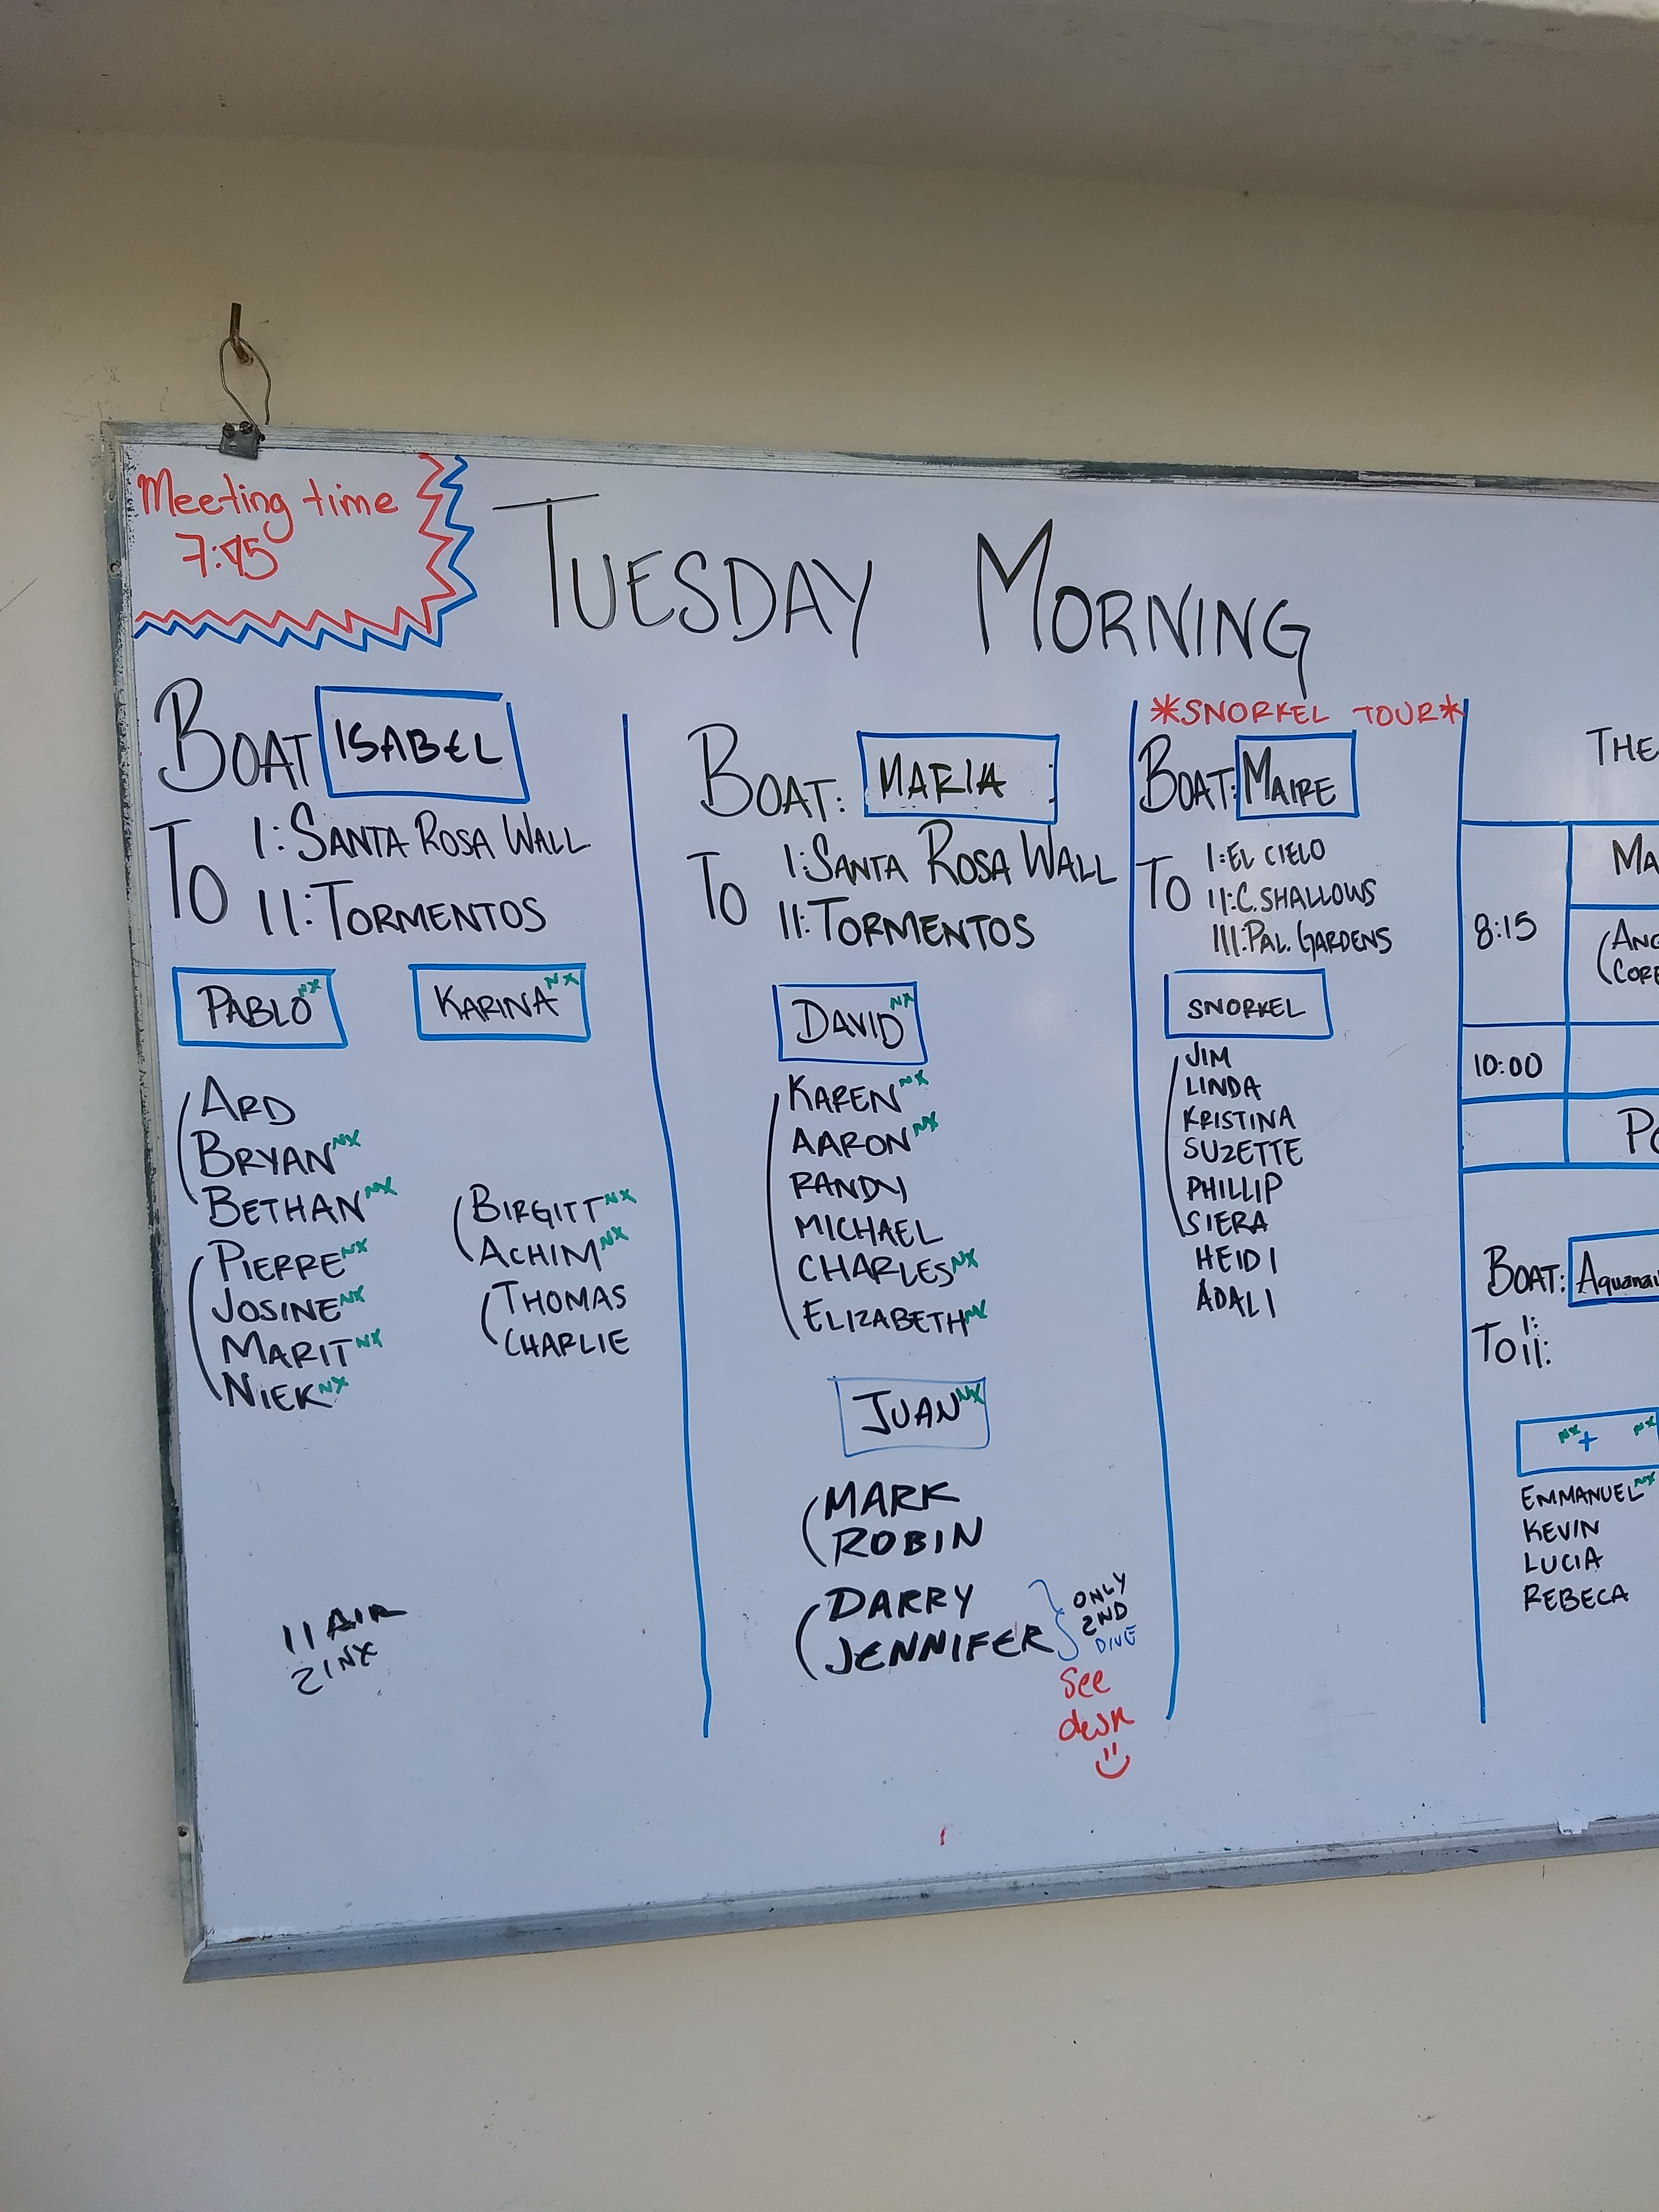 Meeting time
7:45
TUESDAY MORNING
BOAT ISABEL
TO I: SANTA ROSA WALL
II: TORMENTOS
PABLO NX
KARINA NX
ARD
BRYAN NX
BETHAN NX
PIERRE NX
JOSINE NX
MARIT NX
NIEK NX
BIRGITT NX
ACHIM NX
THOMAS
CHARLIE
11 AIR
21 NX
BOAT: MARIA
TO I: SANTA ROSA WALL
II: TORMENTOS
DAVID NX
KAREN NX
AARON NX
RANDY
MICHAEL
CHARLES NX
ELIZABETH NX
JUAN NX
MARK
ROBIN
DARRY
JENNIFER
ONLY
2ND
DIVE
See
desk
*SNORKEL TOUR*
BOAT: MAIRE
TO I: EL CIELO
II: C. SHALLOWS
III: PAL. GARDENS
SNORKEL
JIM
LINDA
KRISTINA
SUZETTE
PHILLIP
SIERA
HEIDI
ADALI
THE
8:15
MA
(ANG
CORE
10:00
PO
BOAT: Aquanau
TO I:
II:
NX + NX
EMMANUEL NX
KEVIN
LUCIA
REBECA